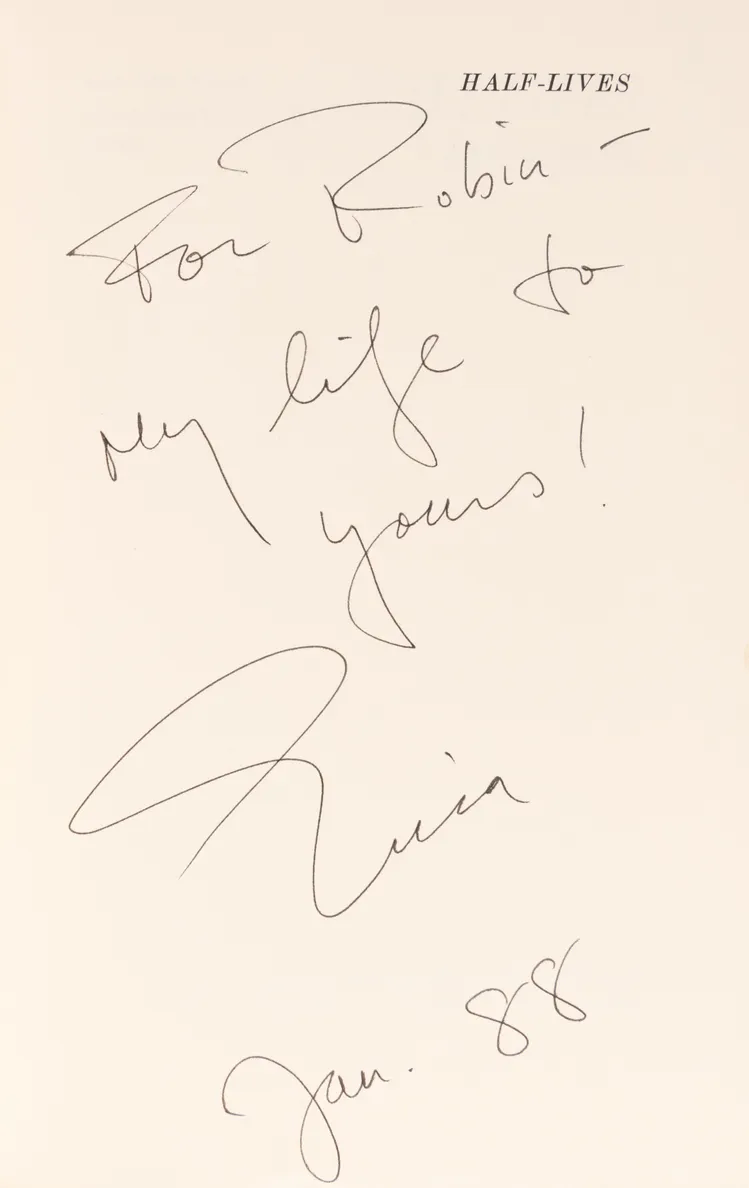 HALF-LIVES
For Robin –
My life to
yours!
Erica
Jan. 88